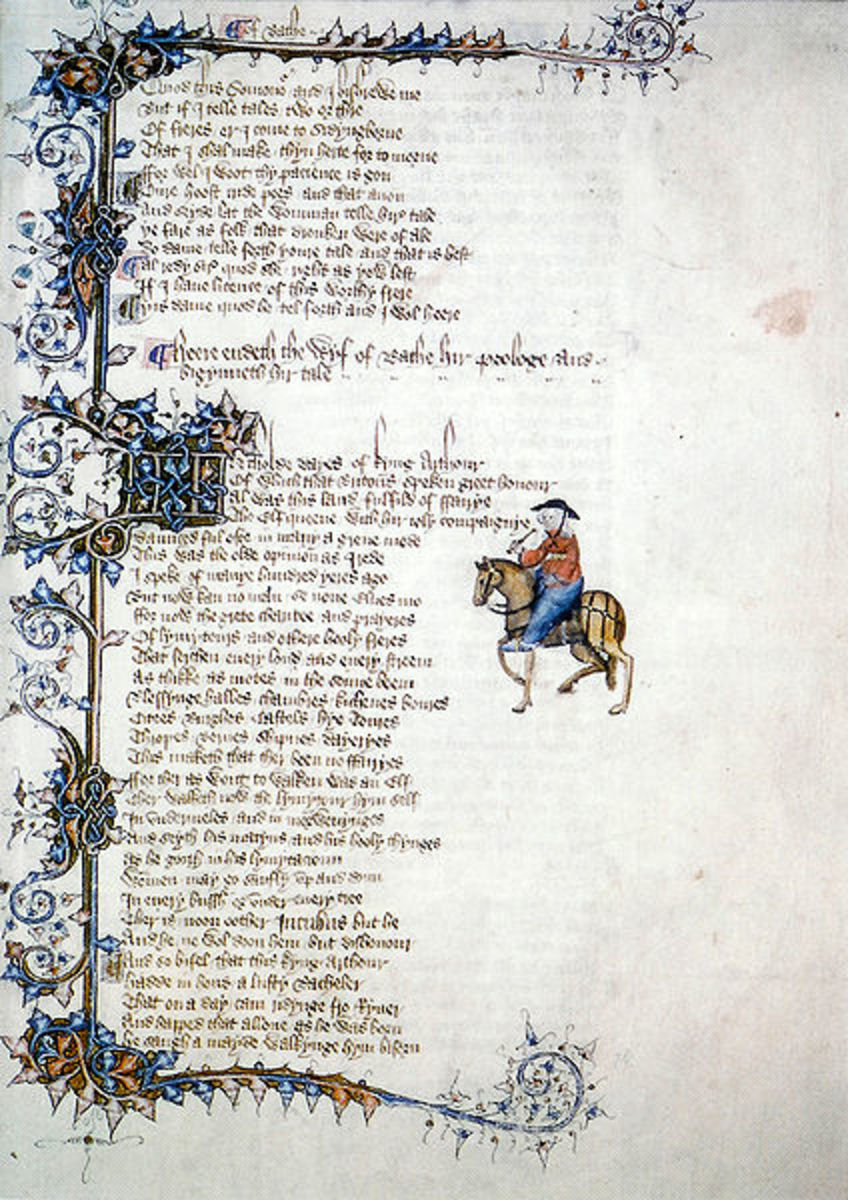 Of Bathe
Quod this Somonor and I bishrewe me
But if I telle tales two or thre
Of freres er I come to Sidyngborne
That I shal make thyn herte for to morne
ffor wel I woot thy pacience is gon
Oure hoost cride pees and that anon
And seyde lat the womman telle hire tale
ye fare as folk that dronken were of ale
Do dame telle forth youre tale and that is best
Al redy sire quod she right as yow lest
If I have licence of this worthy frere
Yis dame quod he tel forth and I wol heere
Heere endeth the Wyf of Bathe hir prologe and
bigynneth hir tale
In tholde dayes of kyng Arthour
Of which that Britons speken greet honour
Al was this land fulfild of ffairye
The Elf queene with hir ioly compaignye
Daunced ful ofte in many a grene mede
This was the olde opinion as I rede
I speke of manye hundred yeres ago
But now kan no man se none Elves mo
ffor now the grete charitee and prayeres
Of lymytours and othere hooly freres
That serchen every lond and every streem
As thikke as motes in the sonne beem
Blessynge halles chambres kichenes boures
Citees Burghes Castels hye Toures
Thropes Bernes Shipnes Dayeryes
This maketh that ther been no ffairyes
ffor ther as wont to walken was an Elf
Ther walketh now the lymytour hym self
In undermeles and in morwenynges
And seyth his matyns and his hooly thynges
As he gooth in his lymytacioun
Wommen may go saufly up and doun
In every bussh or under every tree
Ther is noon oother Incubus but he
And he ne wol doon hem but dishonour
And so bifel that this kyng Arthour
hadde in hous a lusty Bacheler
That on a day cam ridynge fro Ryver
And happed that allone as he was born
he saugh a mayde walkynge hym biforn